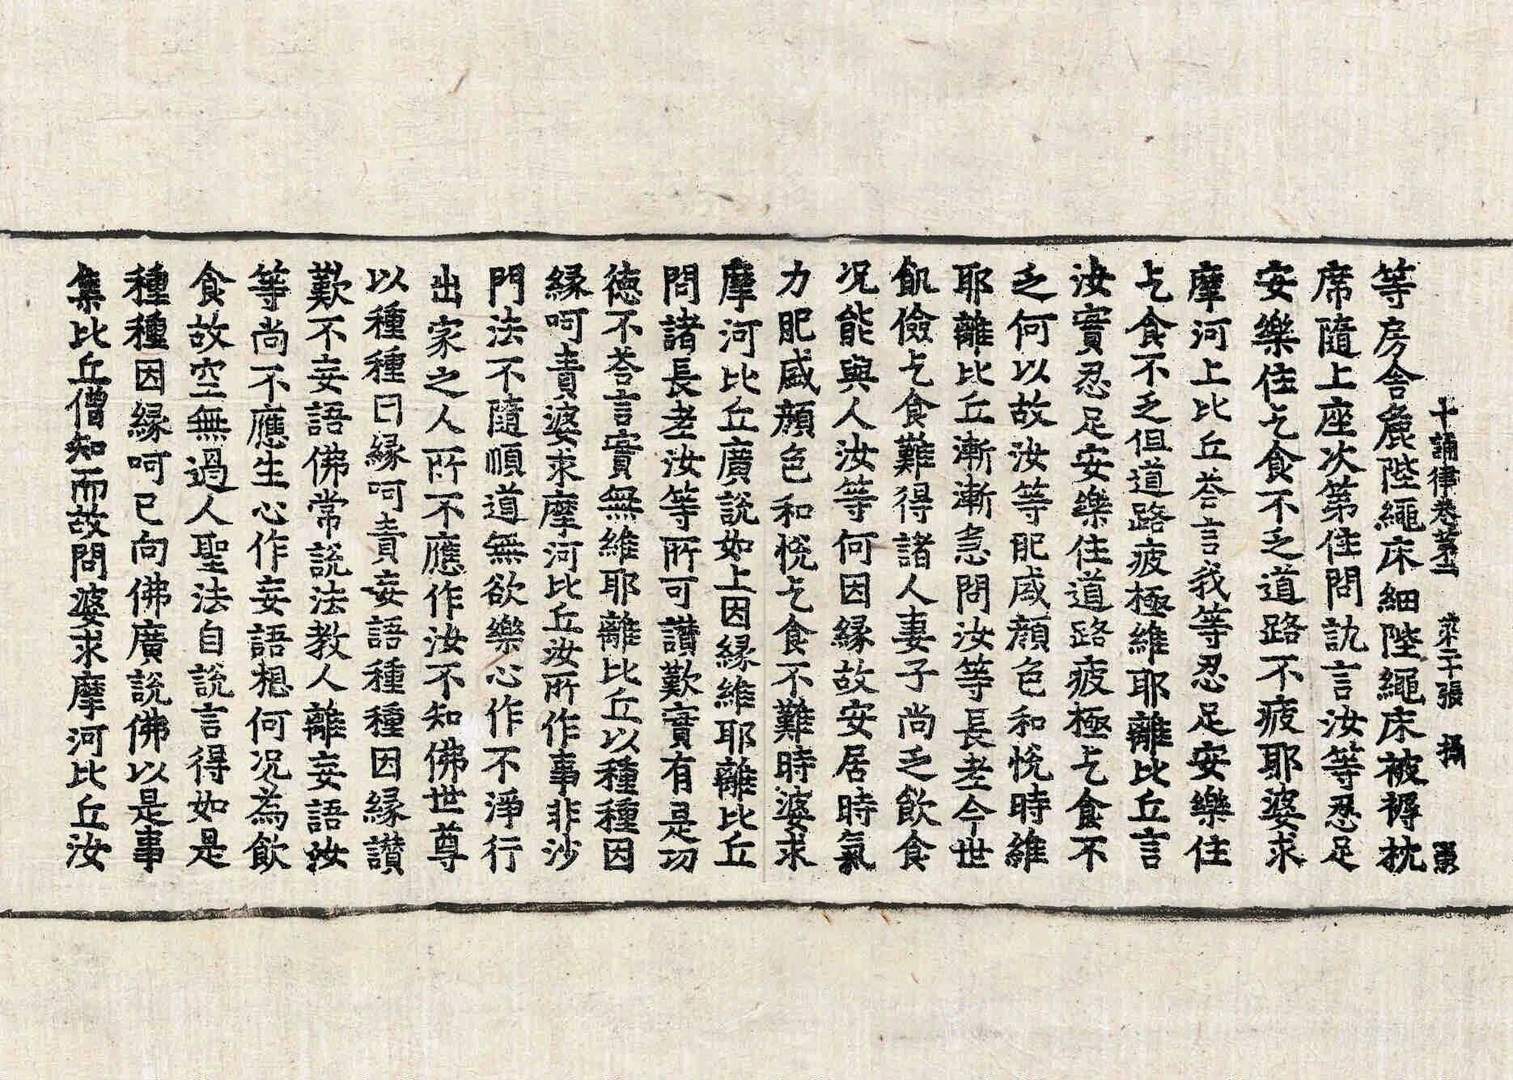 十誦律卷第二 第二十張 攝
等房舍麁陛繩床細陛繩床被褥枕
席隨上座次第住問訊言汝等忍足
安樂住乞食不乏道路不疲耶婆求
摩河上比丘荅言我等忍足安樂住
乞食不乏但道路疲極維耶離比丘言
汝實忍足安樂住道路疲極乞食不
乏何以故汝等肥盛顔色和悅時維
耶離比丘漸漸急問汝等長老今世
飢儉乞食難得諸人妻子尚乏飲食
况能與人汝等何因緣故安居時氣
力肥盛顔色和悅乞食不難時婆求
摩河比丘廣說如上因緣維耶離比丘
問諸長老汝等所可讃歎實有是功
徳不荅言實無維耶離比丘以種種因
緣呵責婆求摩河比丘汝所作事非沙
門法不隨順道無欲樂心作不淨行
出家之人所不應作汝不知佛世尊
以種種曰緣呵責妄語種種因緣讃
歎不妄語佛常説法教人離妄語汝
等尚不應生心作妄語想何况為飲
食故空無過人聖法自說言得如是
種種因緣呵已向佛廣說佛以是事
集比丘僧知而故問婆求摩河比丘汝